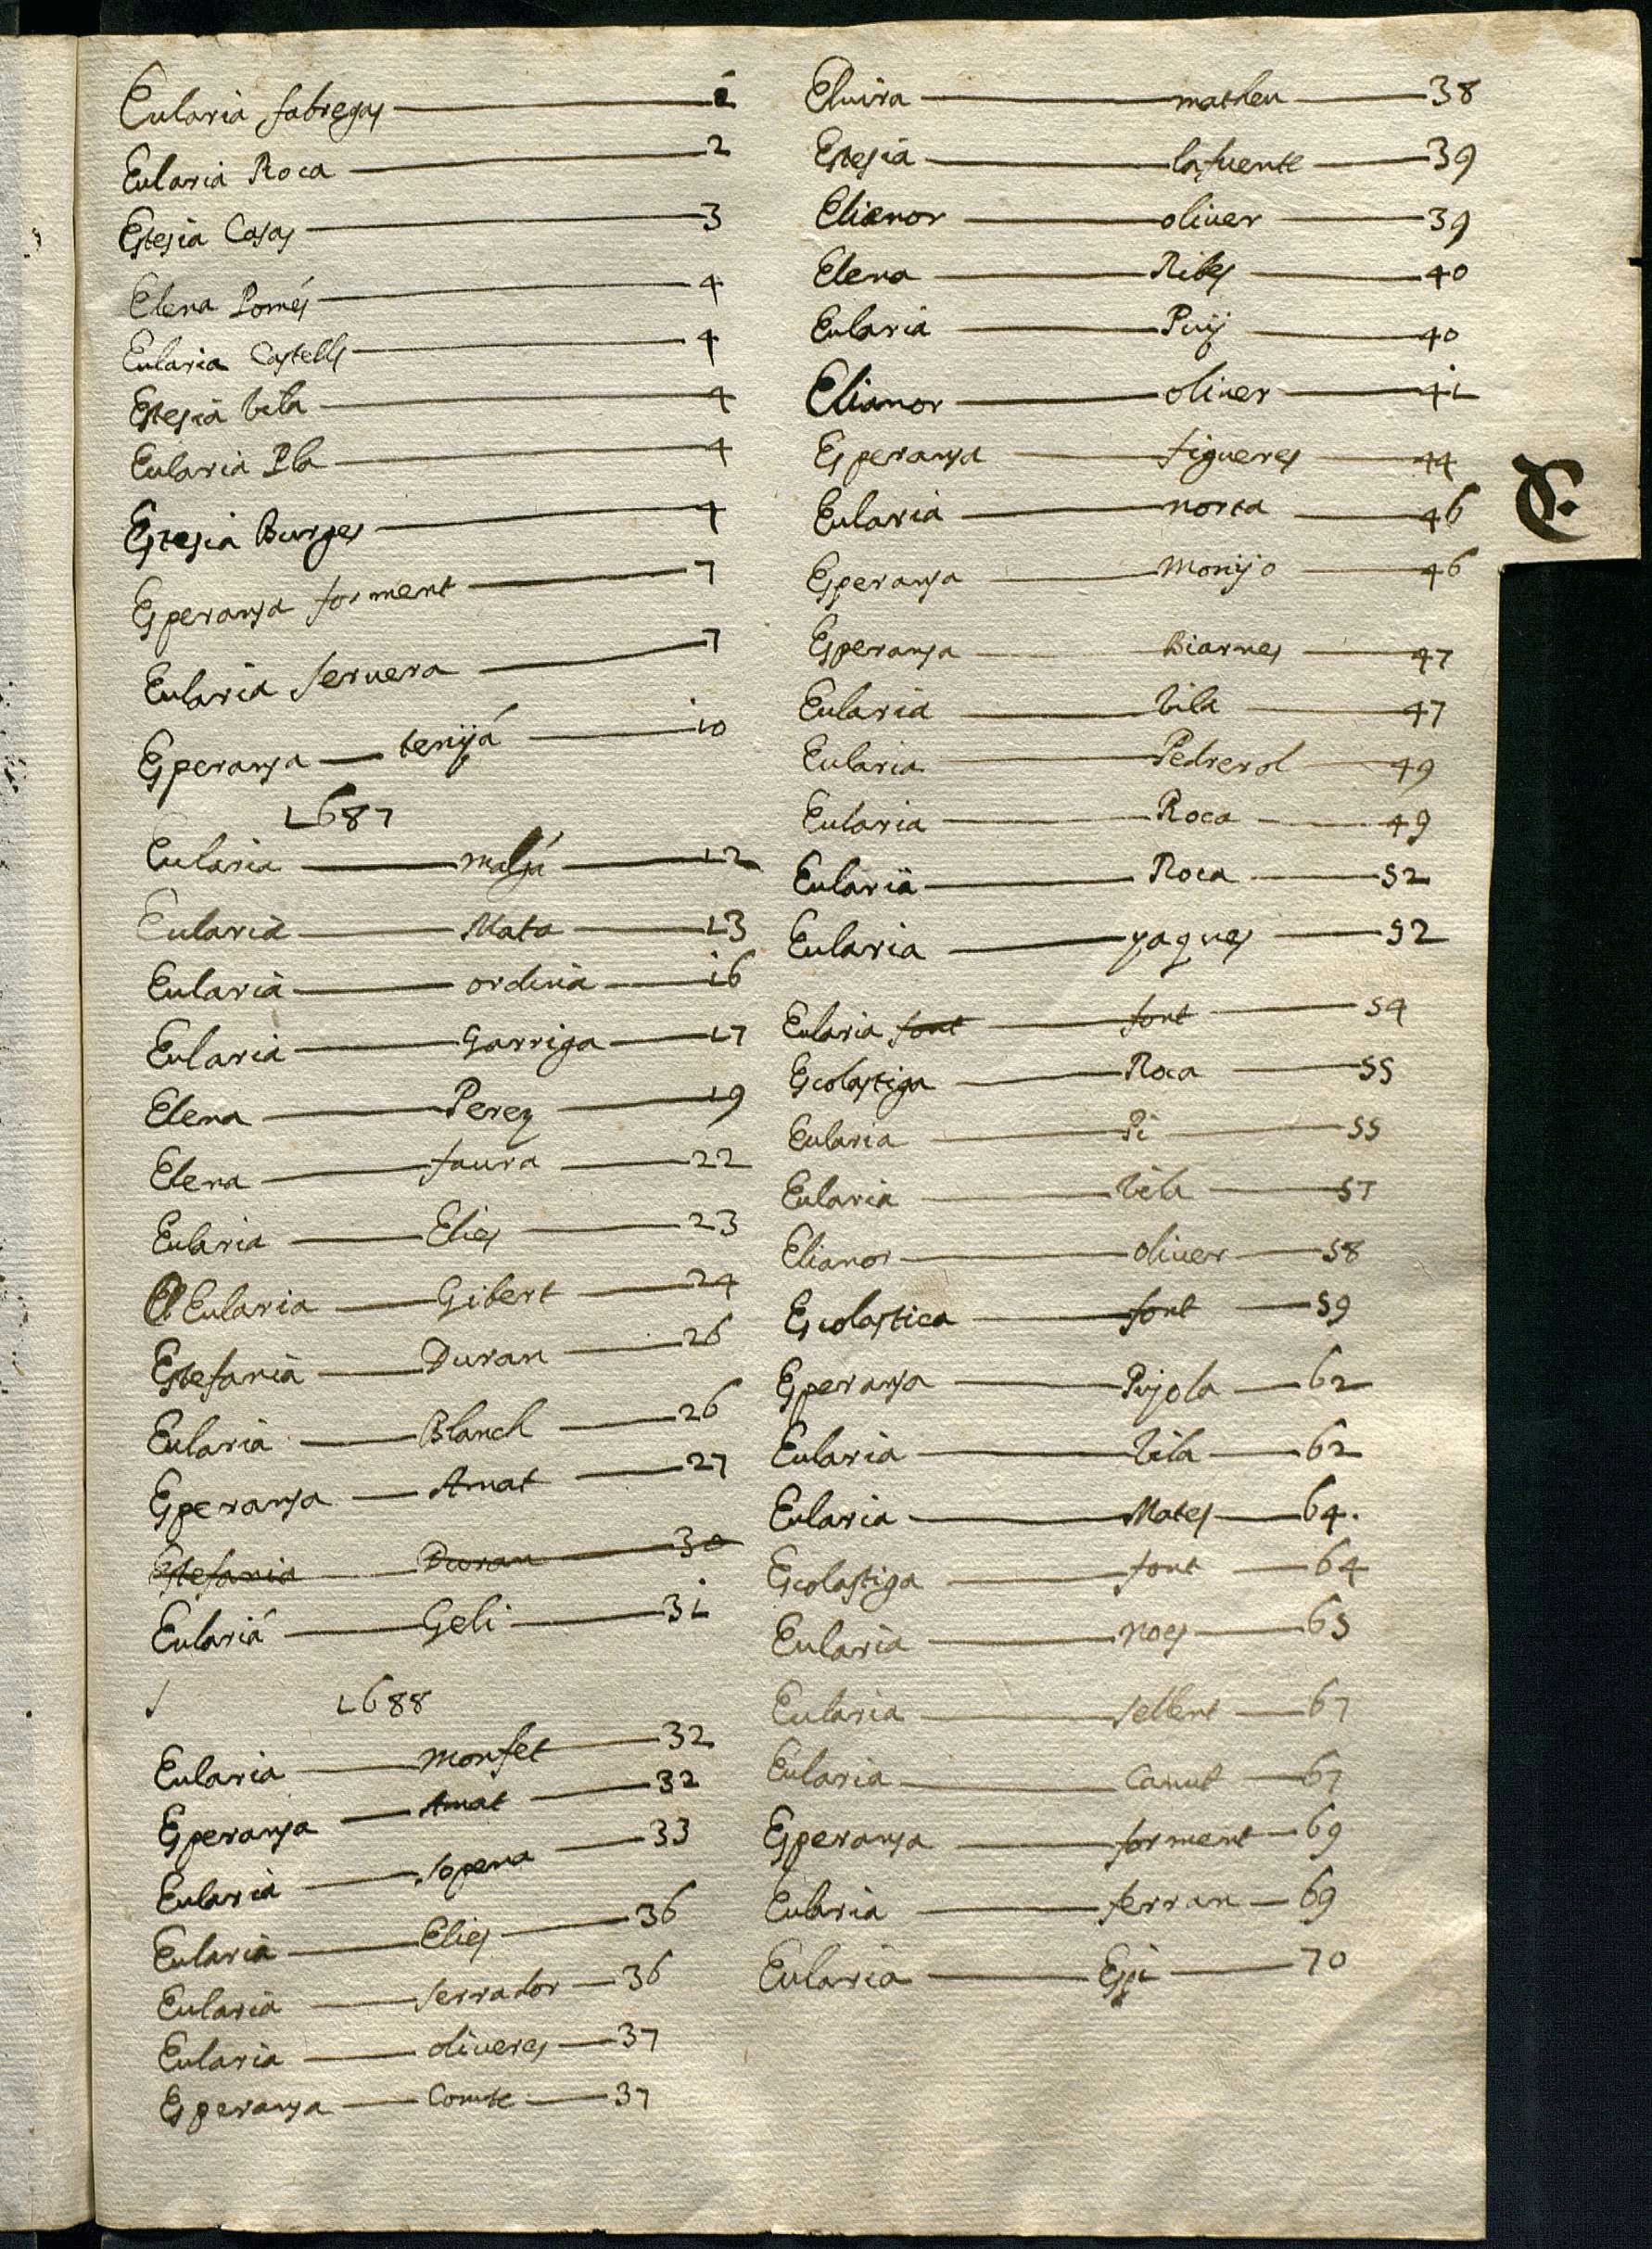 Eularia fabregas 1
Eularia Roca 2
Estesia Casas 3
Elena Pomés 4
Eularia Castells 4
Estesia Vila 4
Eularia Pla 4
Estesia Burges 4
Esperansa forment 7
Eularia seruera 7
Esperansa 10
1687
Eularia 12
Eularia Mata 13
Eularia ordina 16
Eularia Garriga 17
Elena Perez 19
Elena faura 22
Eularia Elies 23
Eularia Gibert 24
Estefania Duran 26
Eularia Blanch 26
Esperansa Amat 27
Estefania Duran 30
Eularia Geli 31
1688
Eularia monfet 32
Esperansa Amat 32
Eularia sopena 33
Eularia Elies 36
Eularia serrador 36
Eularia oliueres 37
Esperansa Comte 37
Eluira matheu 38
Estesia lafuente 39
Elianor oliuer 39
Elena Ribes 40
Eularia Puij 40
Elianor oliuer 41
Esperansa figueres 44
Eularia norta 46
Esperansa 46
Esperansa Biarnes 47
Eularia Vila 47
Eularia Pedrerol 49
Eularia Roca 49
Eularia Roca 52
Eularia yaques 52
Eularia font font 54
Escolastiga Roca 55
Eularia Pi 55
Eularia Vila 57
Elianor oliuer 58
Escolastica font 59
Esperansa Pujola 62
Eularia Vila 62
Eularia Mates 64.
Escolastiga font 64
Eularia noes 65
Eularia sellent 67
Eularia Canut 67
Esperansa forment 69
Eularia ferran 69
Eularia Espi 70
E.